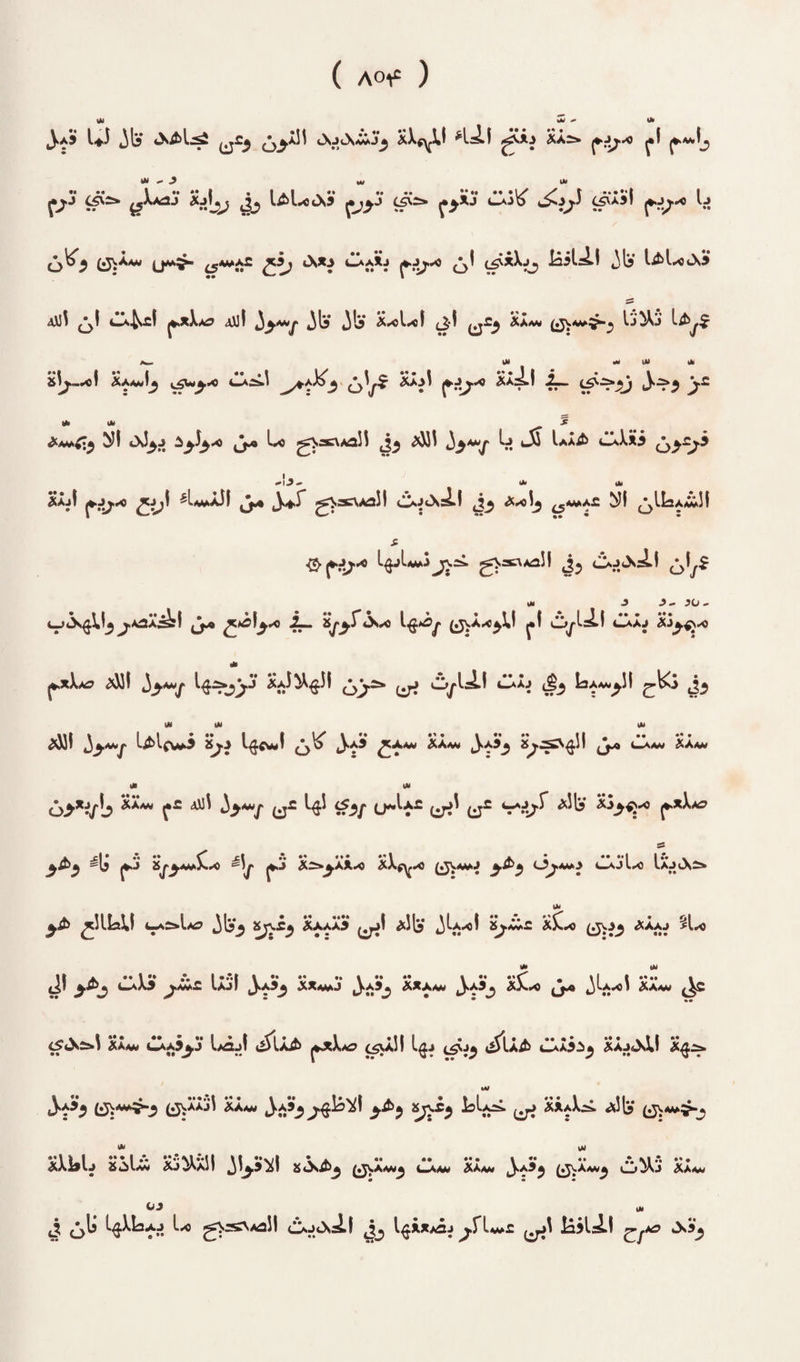 ( ٨٥۴ )
واسم ام مريم حنّة بفتح الحاء المهملة وتشديد النون وعن مجاهد قال لما قيل
يا مريم اقنتي لربك كانت تقوم حتي تورم قدماها وفي رواية تصلي حتي ترم
قدماها قال الحافظ وبلغني ان مريم بقيت بعد رفع عيسي خمس سنين وكان
عمرها ثلاثا وخمسين سنة وعن ابي امامة قال قال رسول الله صلعم اعلمت ان الله
عز وجل زوجني في الجنة مريم ابنة عمران وكلثم اخت موسي واسية امراة
فرعون فقلت هنيا لك يا رسول الله وفي الصحيح ما من مولود يولد الا ويمسه
الشيطان الا عيسي وامه وفي الحديث الصحيح كمل من النساء اربع مريم ابنة
عمران الحديث وفي الصحيح خير نسايها مريم ۞
ميمونة بنت الحارث ام المومنين رضها مذكورة في مواضع من المختصر والمهذب
وفي نكاح الوسيط وهي بنت الحارث بن حزن الهلالية تزوجها رسول الله صلعم
سنة ست من الهجرة وقيل سنة سبع قيل كان اسمها برة فسماها رسول الله
صلعم ميمونة قاله كريب عن ابن عباس روي لها عن رسول الله عم ستة واربعون
حديثا ماتت بسرف وهو بسين مهملة مفتوحة ثم راء مكسورة ثم فاء وهو
ماء بينه وبين مكة عشرة اميال قاله ابن قتيبة وغيره وقال صاحب المطالع هو
علي ستة اميال من مكة وقيل سبعة وقيل تسعة وقيل اثنا عشر قلت وهو الي
جهة المدينة ودفنت هناك وبني بها النبي صلعم هناك ايضا توفيت سنة احدي
وخمسين قاله خليفة بن خياط وغيره وهو الاظهر وقيل سنة اثنتين وخمسين وقيل
سنة ثلاث وستين وقيل سنة ست وستين وهذه الاقوال الثلاثة شاذة باطلة
وقد صرح الحافظ ابن عساكر بضعفها وفي الحديث الصحيح ما يبطلها فان في